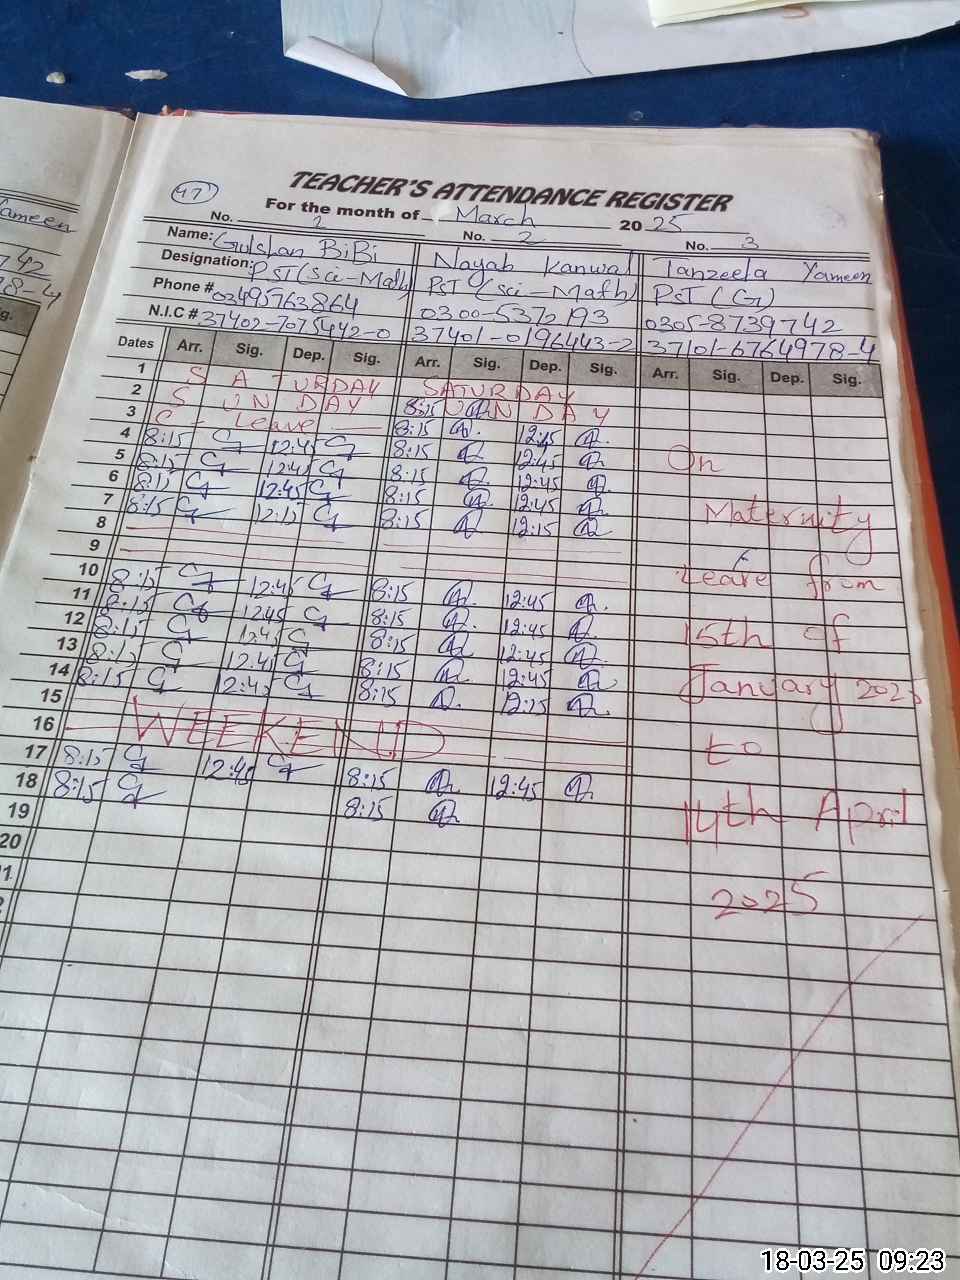 TEACHER'S ATTENDANCE REGISTER
47
For the month of March 2025
No. 2 No. 2 No. 3
Name: Gulshan BiBi Nayab Kanwal Tanzeela Yameen
Designation: PST (Sci-Math) PST (Sci-Math) PST (G)
Phone # 03495763864 0300-5372193 0305-8739742
N.I.C # 37402-7075442-0 37401-0196443-2 37101-6764978-4
Dates Arr. Sig. Dep. Sig. Arr. Sig. Dep. Sig. Arr. Sig. Dep. Sig.
1 SATURDAY SATURDAY
2 SUNDAY SUNDAY
3 C - Leave 8:15 12:45
4 8:15 12:45 8:15 12:45
5 8:15 12:45 8:15 12:45
6 8:15 12:45 8:15 12:45
7 8:15 12:15 8:15 12:15
8
9
10 8:15 12:45 8:15 12:45
11 8:15 12:45 8:15 12:45
12 8:15 12:45 8:15 12:45
13 8:15 12:45 8:15 12:45
14 8:15 12:45 8:15 12:15
15 WEEKEND
16
17 8:15 12:45 8:15 12:45
18 8:15 8:15
19
20
On
Maternity
Leave from
15th of
January 2025
to
14th April
2025
Yameen
742
78-4
18-03-25 09:23